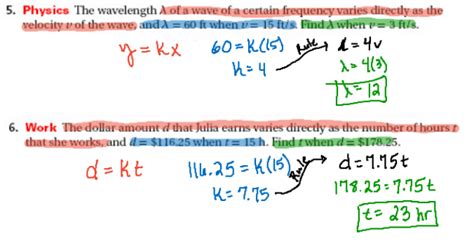 5. Physics The wavelength λ of a wave of a certain frequency varies directly as the
velocity v of the wave, and λ = 60 ft when v = 15 ft/s. Find λ when v = 3 ft/s.
y = kx
60 = K(15)
K = 4
Rule
λ = 4v
λ = 4(3)
λ = 12
6. Work The dollar amount d that Julia earns varies directly as the number of hours t
that she works, and d = $116.25 when t = 15 h. Find t when d = $178.25.
d = Kt
116.25 = K(15)
K = 7.75
Rule
d = 7.75t
178.25 = 7.75t
t = 23 hr